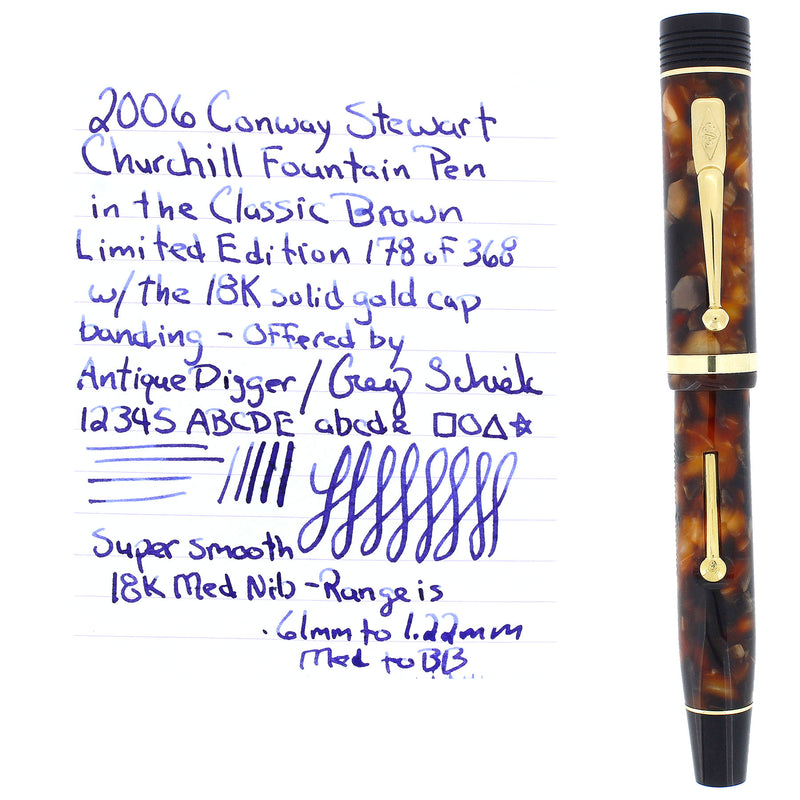 2006 Conway Stewart
Churchill Fountain Pen
in the Classic Brown
Limited Edition 178 of 368
w/ the 18K solid gold cap
banding - Offered by
Antique Digger / Greg
12345 ABCDE abcde
Super smooth
18K Med Nib - Range is
.61mm to 1.22mm
Med to BB